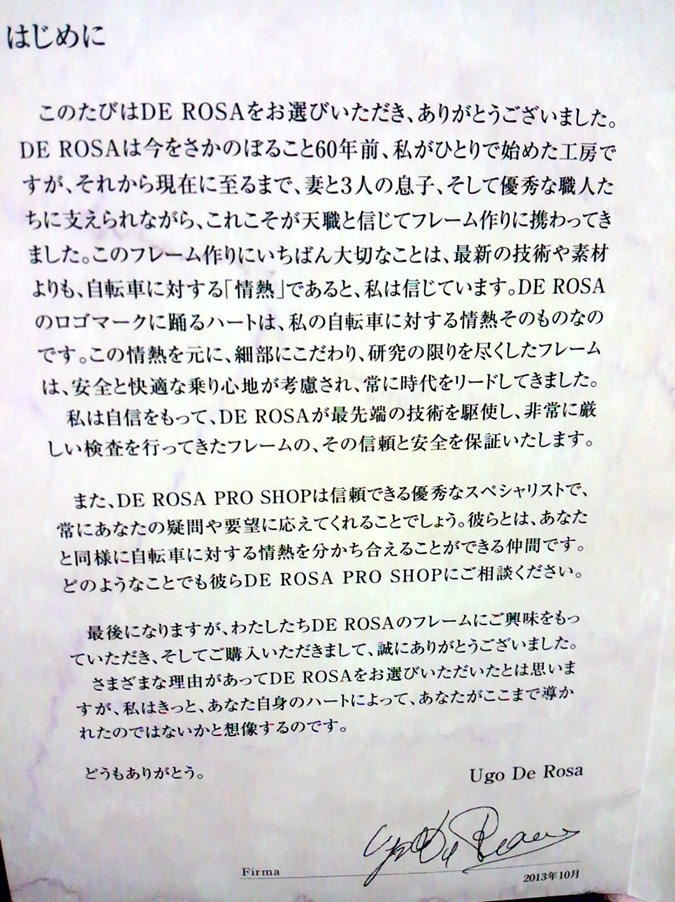 はじめに
このたびはDE ROSAをお選びいただき、ありがとうございました。
DE ROSAは今をさかのぼること60年前、私がひとりで始めた工房で
すが、それから現在に至るまで、妻と3人の息子、そして優秀な職人た
ちに支えられながら、これこそが天職と信じてフレーム作りに携わってき
ました。このフレーム作りにいちばん大切なことは、最新の技術や素材
よりも、自転車に対する「情熱」であると、私は信じています。DE ROSA
のロゴマークに踊るハートは、私の自転車に対する情熱そのものなの
です。この情熱を元に、細部にこだわり、研究の限りを尽くしたフレーム
は、安全と快適な乗り心地が考慮され、常に時代をリードしてきました。
私は自信をもって、DE ROSAが最先端の技術を駆使し、非常に厳
しい検査を行ってきたフレームの、その信頼と安全を保証いたします。
また、DE ROSA PRO SHOPは信頼できる優秀なスペシャリストで、
常にあなたの疑問や要望に応えてくれることでしょう。彼らとは、あなた
と同様に自転車に対する情熱を分かち合えることができる仲間です。
どのようなことでも彼らDE ROSA PRO SHOPにご相談ください。
最後になりますが、わたしたちDE ROSAのフレームにご興味をもっ
ていただき、そしてご購入いただきまして、誠にありがとうございました。
さまざまな理由があってDE ROSAをお選びいただいたとは思いま
すが、私はきっと、あなた自身のハートによって、あなたがここまで導か
れたのではないかと想像するのです。
どうもありがとう。
Ugo De Rosa
Ugo De Rosa
Firma
2013年10月